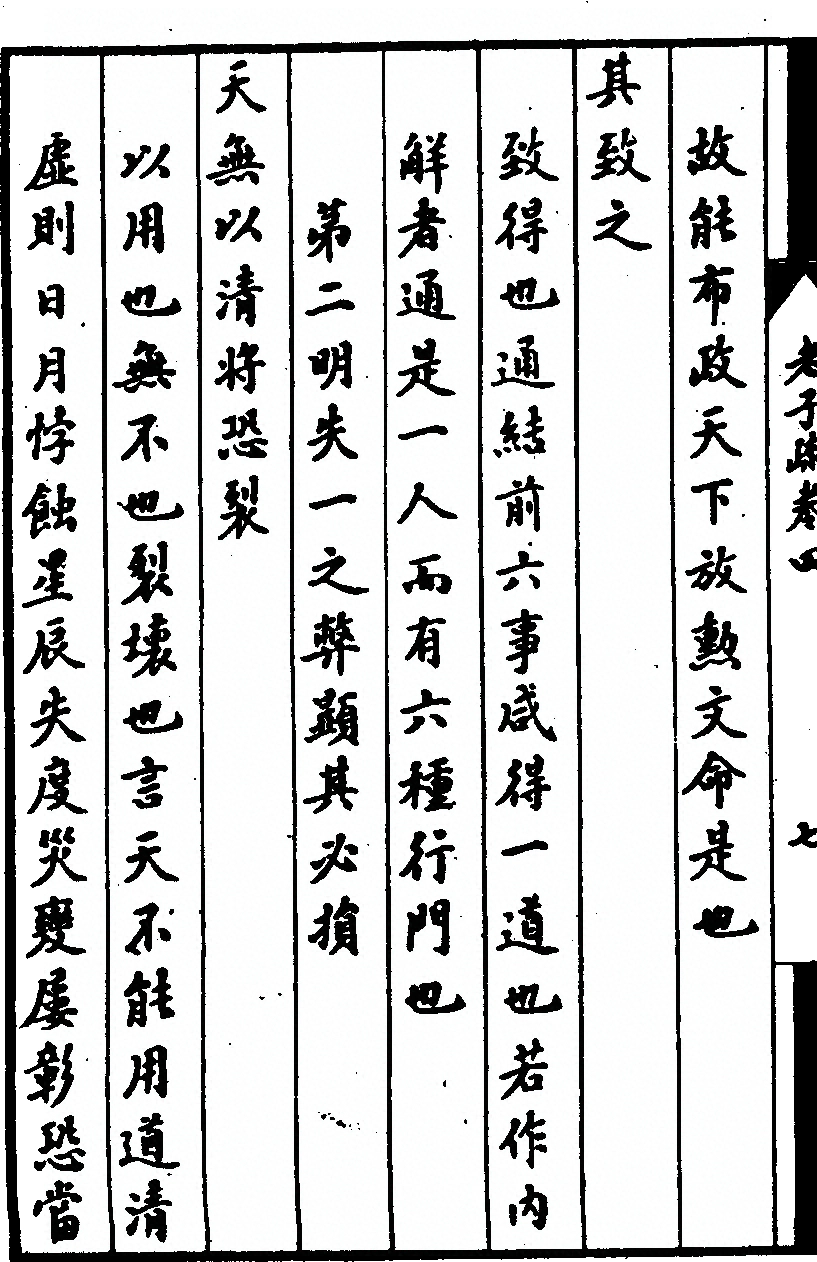 老子疏卷四
七
故能布政天下放勲文命是也
其致之
致得也通結前六事咸得一道也若作內
解者通是一人而有六種行門也
第二明失一之弊顯其必損
天無以清將恐裂
以用也無不也裂壞也言天不能用道清
虛則日月悖蝕星辰失度災變屡彰恐當